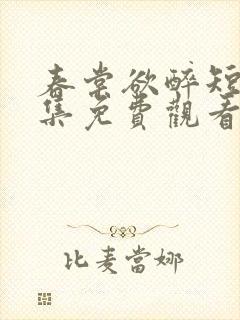 春棠欲醉短
集免費觀看
比麦當娜